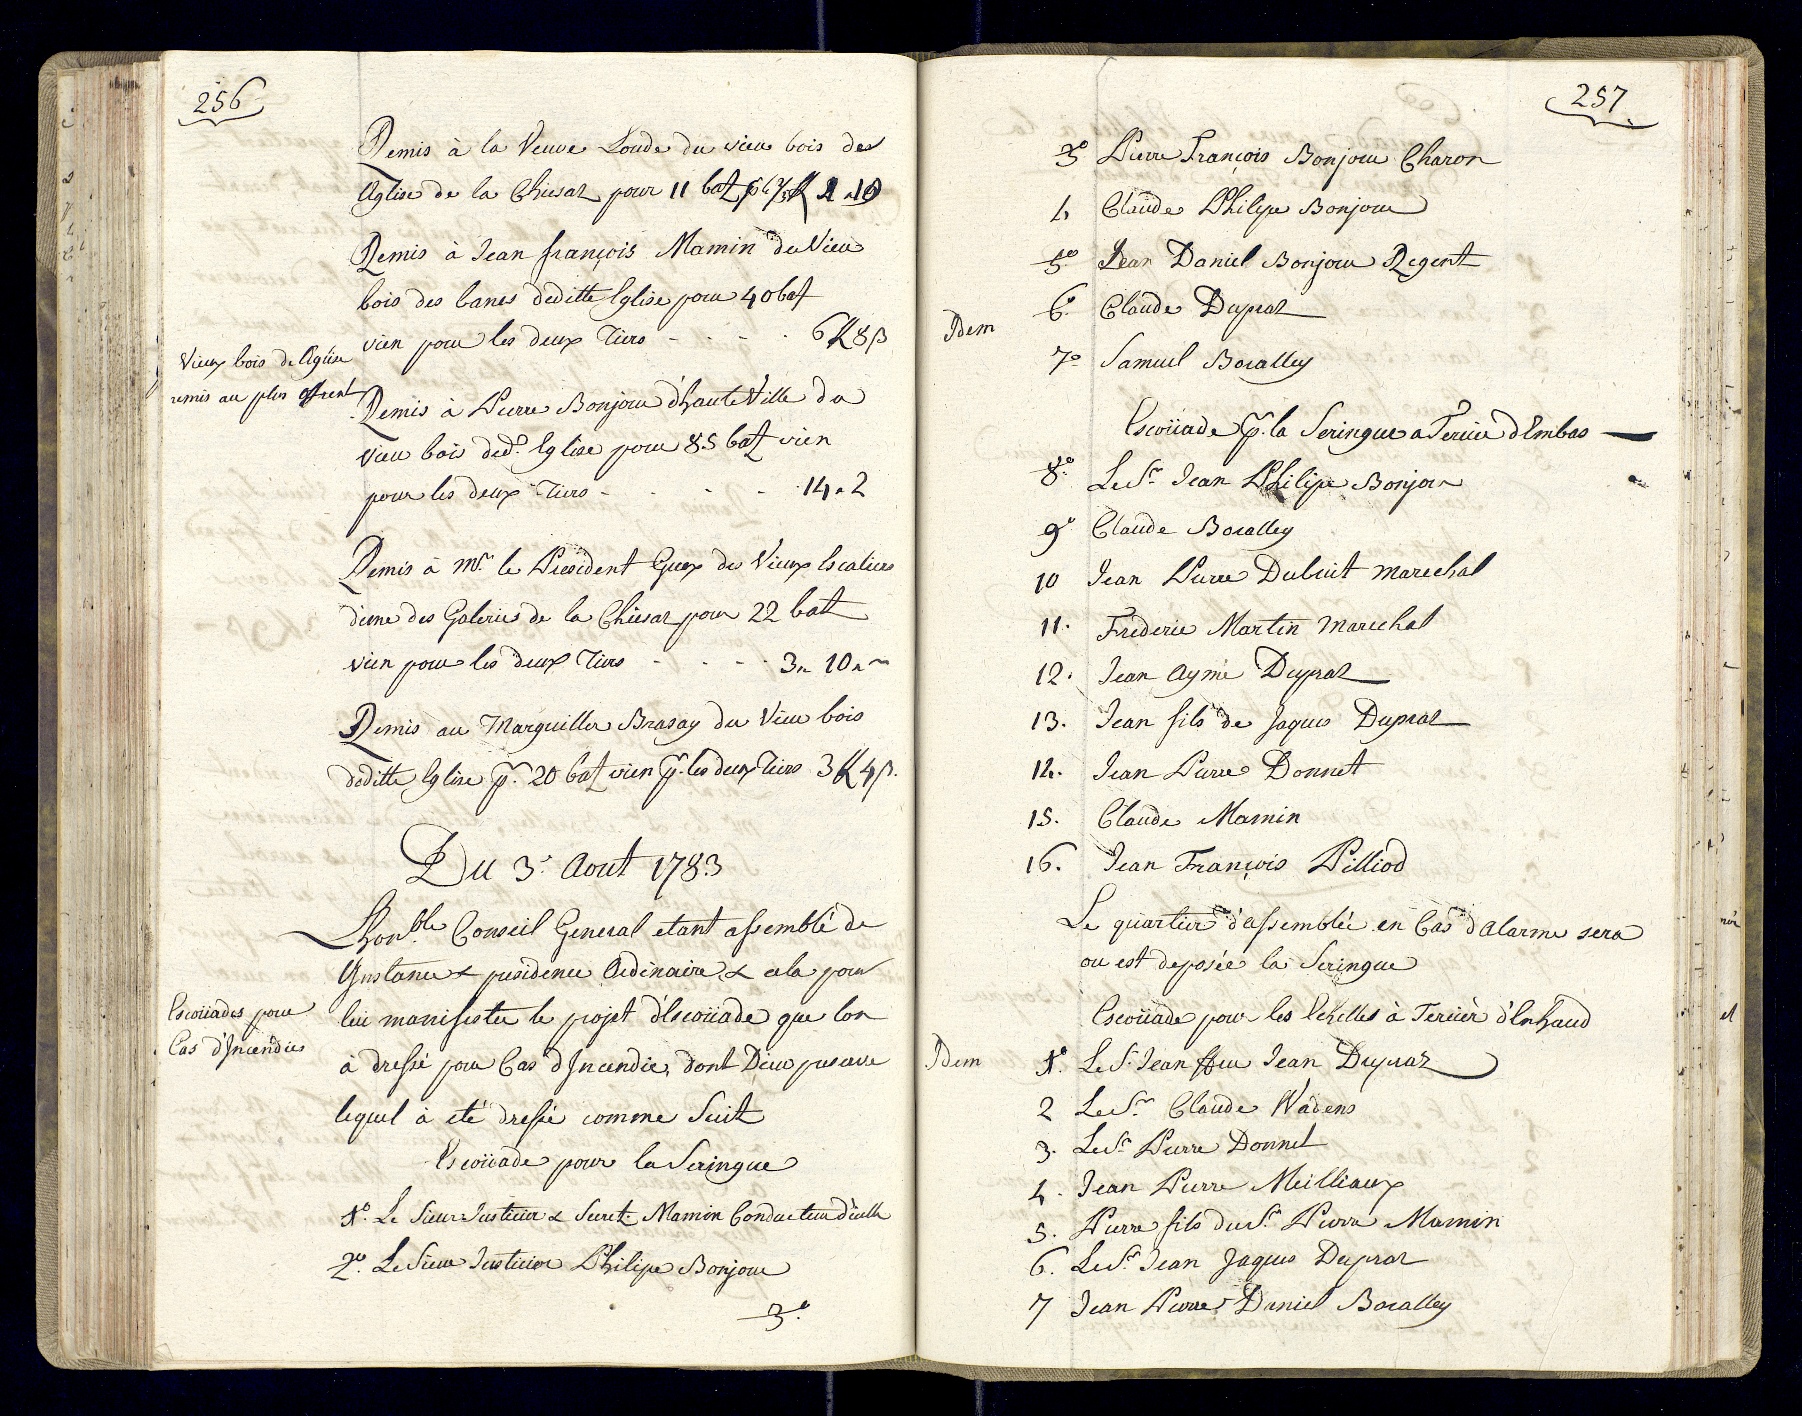 256
Remis à la Veuve Loude du vieu bois de
l'Eglise de la Chiesaz pour 11 bat
Remis à Jean françois Mamin du Vieu
bois des bancs deditte Eglise pour 40 bat
vien pour les deux Tiers - - - - 6 ℔ 8 β
Vieux bois de l'Eglise
remis au plus offrent
Remis à Pierre Bonjour d'hauteVille du
vieu bois ded.e Eglise pour 85 bat vien
pour les deux Tiers - - - - 14 " 2
Remis à Mr. le Président Guex des Vieux Escaliers
d'une des Galeries de la Chiésaz pour 22 bat
vien pour les deux Tiers - - - - 3 " 10 "
Remis au Marguiller Brasay du Vieu bois
deditte Eglise pr. 20 bat vien pr. les deux Tiers 3 ℔ 4 β.
Du 3.e Aout 1783
Lhonble. Conseil General etant assemblé de
Instance & presidence Ordinaire, & cela pour
Escoüades pour
Cas d'Incendies
lui manifester le projet d'Escoüade que lon
à dressé pour Cas d'Incendie, dont Dieu preserve
lequel à eté dressé comme Suit
Escoüade pour la Seringue
1.o Le Sieur Justicier & Secret. Mamin Conducteur d'icelle
2.o Le Sieur Justicier Philipe Bonjour
3.o
257
3.o Pierre François Bonjour Charon
4 Claude Philipe Bonjour
5.o Jean Daniel Bonjour Regent
6.o Claude Dupraz
Idem
7.o Samuel Boralley
Escoüade pr. la Seringue a Tercier d'Embas
8.o Le Sr. Jean Philipe Bonjour
9.o Claude Boralley
10 Jean Pierre Dubuit marechal
11. Frederic Martin marechal
12. Jean Aymé Dupraz
13. Jean fils de Jaques Dupraz
14. Jean Pierre Donnet
15. Claude Mamin
16. Jean François Pilliod
Le quartier d'assemblée en Cas d'alarme sera
ou est deposée la Seringue
Escoüade pour les Echelles à Tercier d'Enhaud
Idem
1.o Le Sr. Jean ffeu Jean Dupraz
2 Le Sr. Claude Wadens
3. Le Sr. Pierre Donnet
4. Jean Pierre Meilliaux
5. Pierre fils du Sr. Pierre Mamin
6. Le Sr. Jean Jaques Dupraz
7 Jean Pierre Daniel Boralley